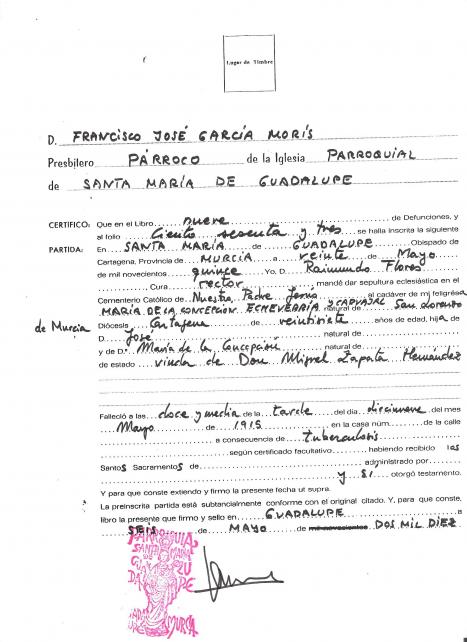 Lugar de Timbre
D. FRANCISCO JOSÉ GARCÍA MORÍS
Presbítero PÁRROCO de la Iglesia PARROQUIAL
de SANTA MARÍA DE GUADALUPE
CERTIFICO: Que en el Libro nueve de Defunciones, y
al folio Ciento sesenta y tres se halla inscrita la siguiente
PARTIDA: En SANTA MARÍA de GUADALUPE Obispado de
Cartagena, Provincia de MURCIA a veinte de Mayo
de mil novecientos quince Yo, D. Raimundo Flores
Cura rector mandé dar sepultura eclesiástica en el
Cementerio Católico de Nuestro Padre Jesús al cadáver de mi feligresa
MARIA DE LA CONCEPCION ECHEVERRÍA Y CARVAJAL natural de San Lorenzo
de Murcia Diócesis Cartagena de veintisiete años de edad, hija de
D. José natural de
y de Dª María de la Concepción natural de
de estado viuda de Don Miguel Zapata Hernández
Falleció a las doce y media de la tarde del día diecinueve del mes
Mayo de 1915 en la casa núm. de la calle
a consecuencia de tuberculosis
según certificado facultativo habiendo recibido los
Santos Sacramentos de administrado por
y SI otorgó testamento.
Y para que conste extiendo y firmo la presente fecha ut supra.
La preinscrita partida está substancialmente conforme con el original citado. Y para que conste,
libro la presente que firmo y sello en GUADALUPE a
SEIS de MAYO de mil novecientos DOS MIL DIEZ
PARROQUIA
SANTA MARIA
GUADALUPE
MURCIA